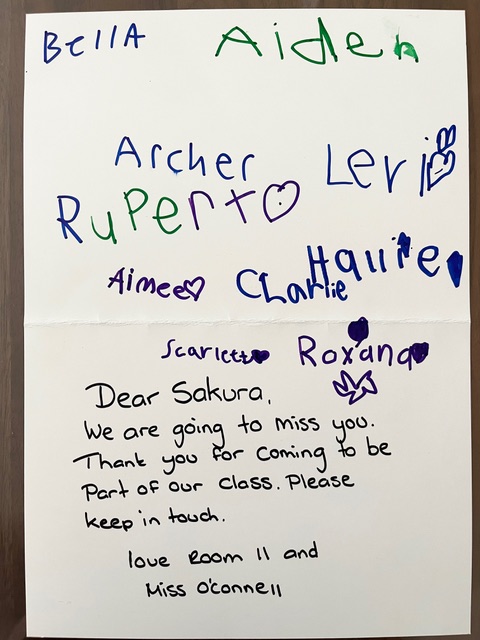 BellA Aiden
Archer Levi
RuPert
Aimee CHarlie
Scarlett Roxana
Dear Sakura,
We are going to miss you.
Thank you for coming to be
Part of our class. Please
keep in touch.
love Room 11 and
Miss O'Connell